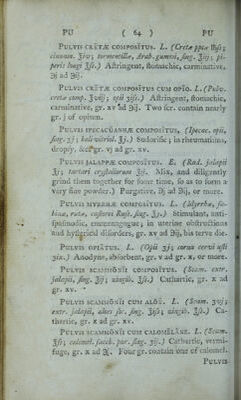 PU ( 64 ) PU
PULVIS CRETÆ COMPOSITUS. L. (Cretæ ppt
cinnam. tormentillæ, arab. gummi, sing.
peris longi ʒſs.) Aſtringent, ſtomachic, carminative.
ad
PULVIS CRETÆ COMPOSITUS CUM OPIO. L. (Pulv.
cretæ comp. opii Aſtringent, ſtomachic,
carminative, gr. xv ad Two ſcr. contain nearly
gr. j of opium.
PULVIS IPECACUANHÆ COMPOSITUS. (Ipecac. opii,
ſing. Sudorific; in rheumatiſms,
dropſy, &c. gr. vj ad gr. xv.
PULVIS JALAPPÆ COMPOSITUS. E. (Rad. jalapii
tartari cryſtallorum Mix, and diligently
grind them together for ſome time, ſo as to form a
very fine powder.) Purgative, ad or more.
PULVIS MYRRHÆ COMPOSITUS. L. (Myrrhæ, ſa-
binæ, rutæ, caſtorei Ruſſ. ſing. Stimulant, anti-
ſpaſmodic, emmenagogue; in uterine obſtructions
and hyſterical diſorders, gr. xv ad or more.
PULVIS OPIATUS. L. (Opii cornu cervi uſti
Anodyne, abſorbent, gr. v ad gr. x, or more.
PULVIS SCAMMONII COMPOSITUS. (Scam. extr.
jalapii, ſing. zingib. Cathartic, gr. x ad
gr. xv.
PULVIS SCAMMONII CUM ALOE. L. (Scam.
extr. jalapii, aloes ſoc. ſing. zingib. Ca-
thartic, gr. x ad gr. xv.
PULVIS SCAMMONII CUM CALOMELANE. L. (Scam.
calomel. ſacch. pur. ſing. Cathartic, vermi-
fuge, gr. x ad Four gr. contain one of calomel.
PULVIS